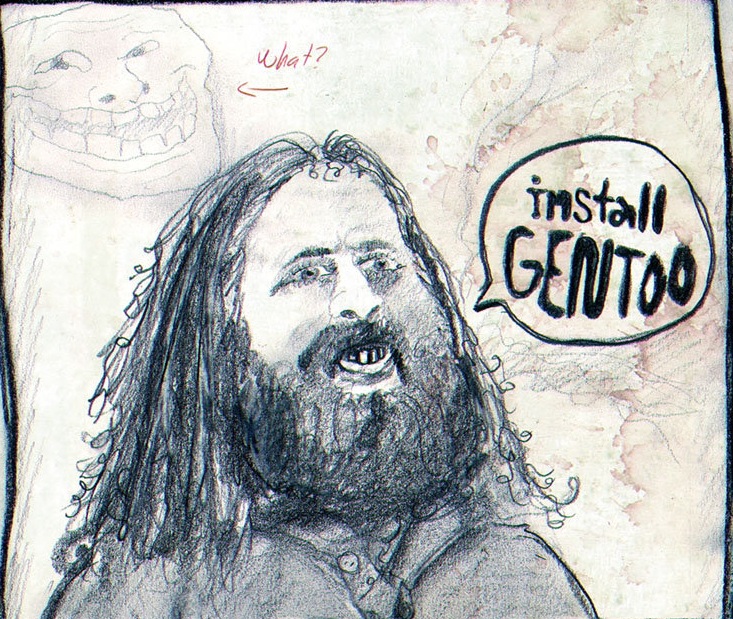 What?
install
GENTOO